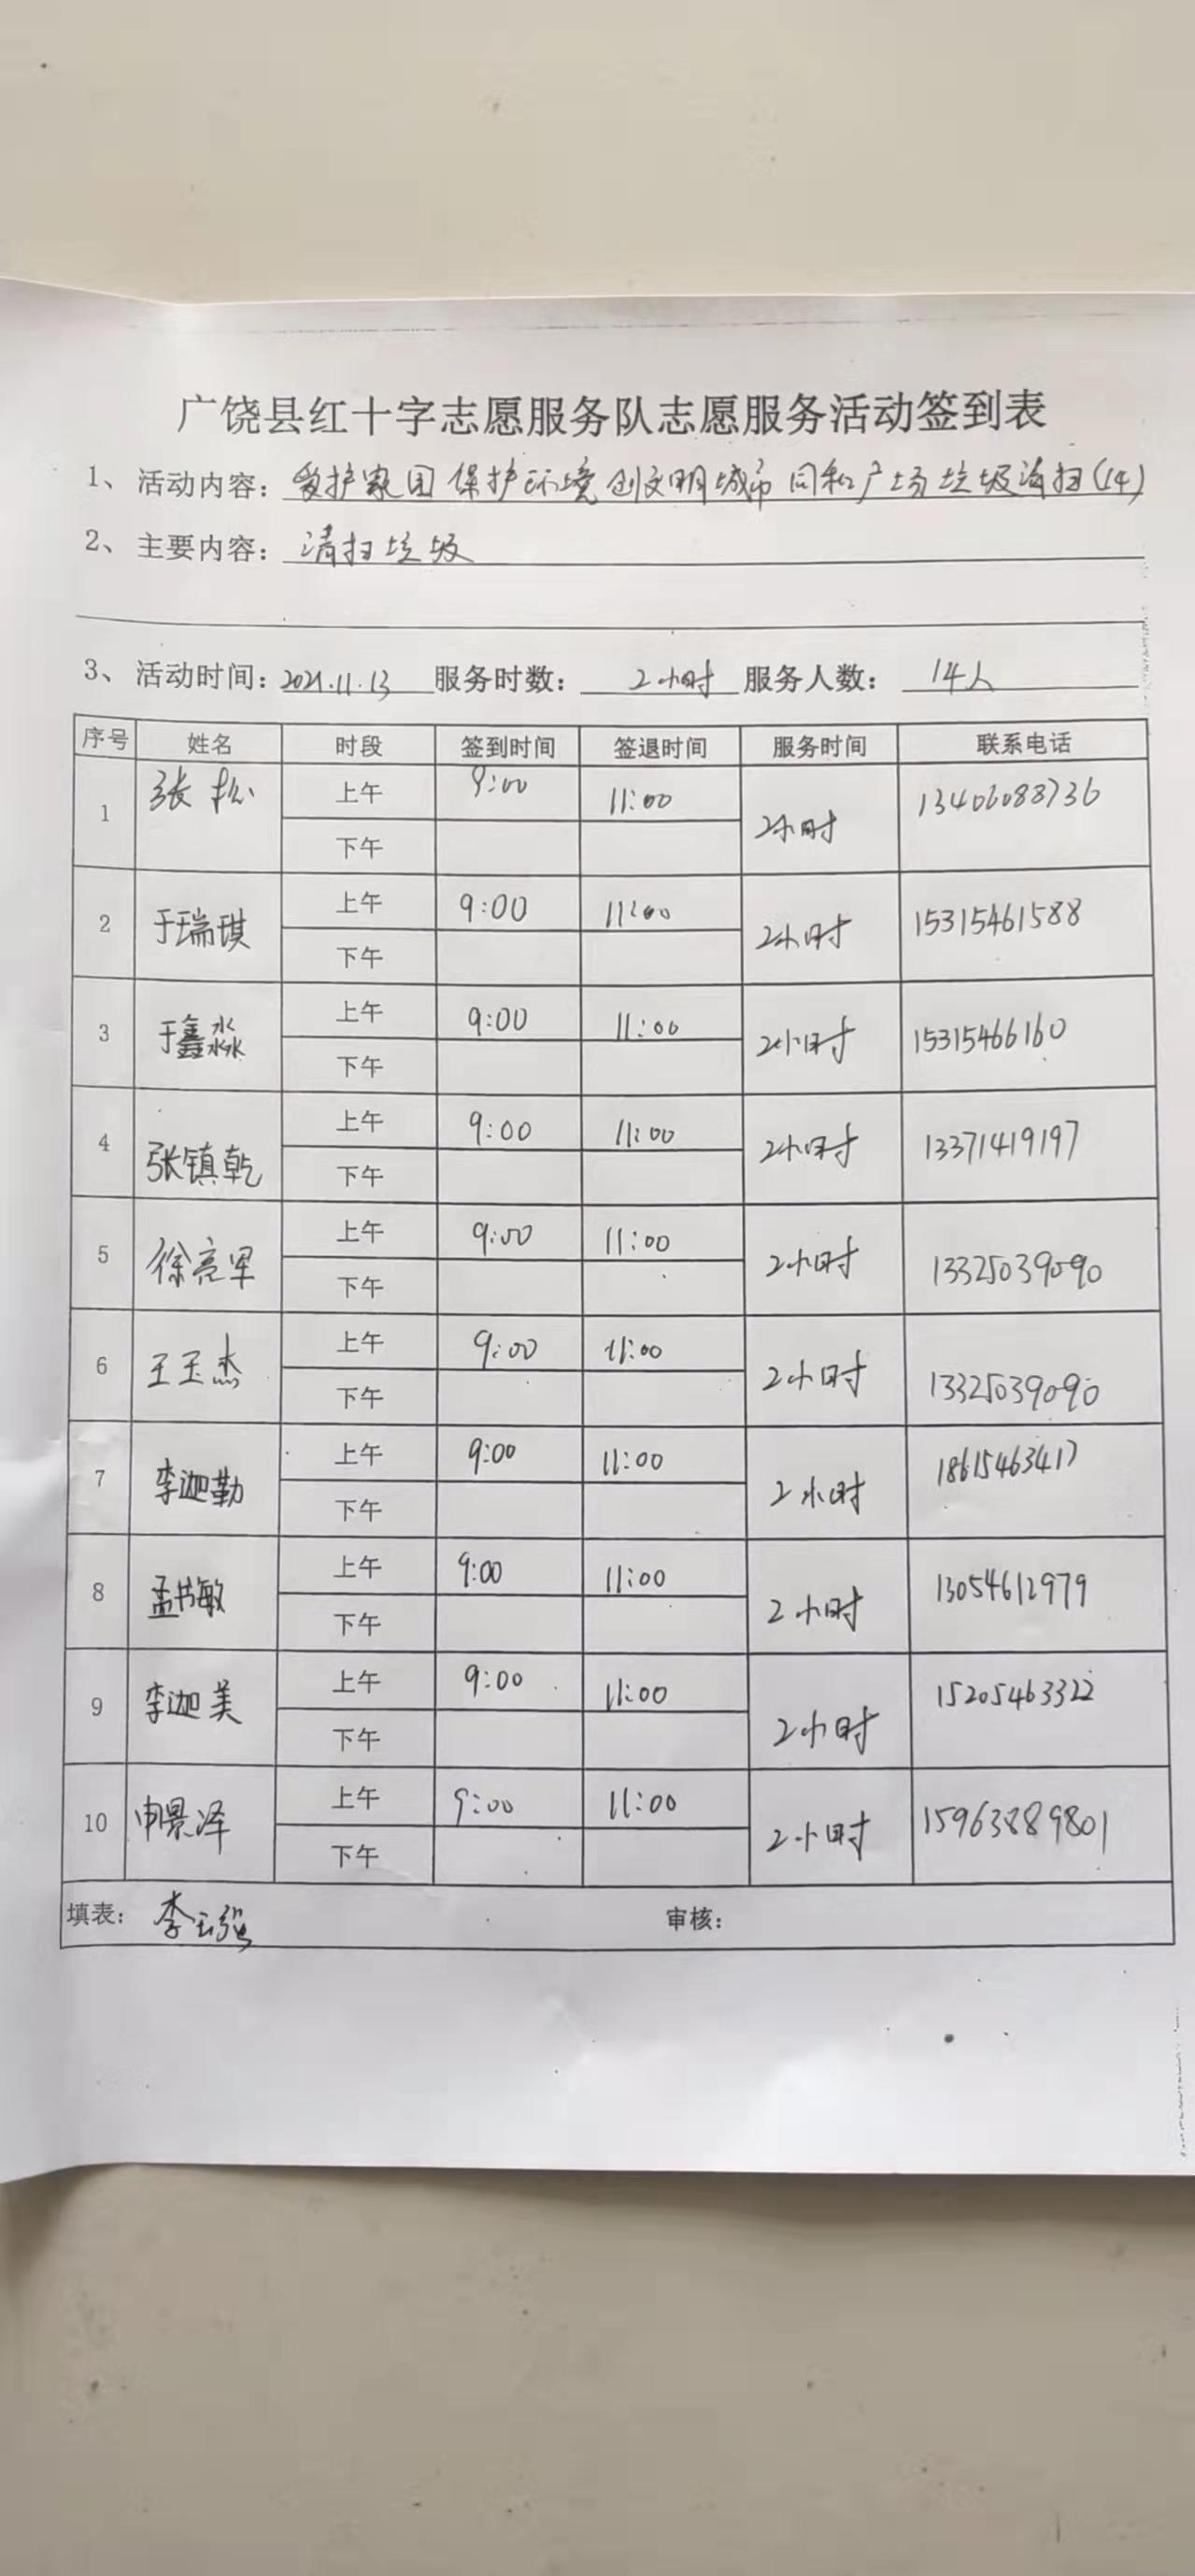 广饶县红十字志愿服务队志愿服务活动签到表
1、活动内容：爱护家园 保护环境 创文明城市 同和广场垃圾清扫(14)
2、主要内容：清扫垃圾
3、活动时间：2021.11.13 服务时数：2小时 服务人数：14人
序号 姓名 时段 签到时间 签退时间 服务时间 联系电话
1 张松 上午 9:00 11:00 2小时 13406088736
下午
2 于瑞琪 上午 9:00 11:00 2小时 15315461588
下午
3 于鑫淼 上午 9:00 11:00 2小时 15315466160
下午
4 张镇乾 上午 9:00 11:00 2小时 13371419197
下午
5 徐亮军 上午 9:00 11:00 2小时 13325039090
下午
6 王玉杰 上午 9:00 11:00 2小时 13325039090
下午
7 李迦勒 上午 9:00 11:00 2小时 18615463417
下午
8 孟书敏 上午 9:00 11:00 2小时 13054612979
下午
9 李迦美 上午 9:00 11:00 2小时 15205463322
下午
10 申景泽 上午 9:00 11:00 2小时 15963889801
下午
填表：李云强 审核：